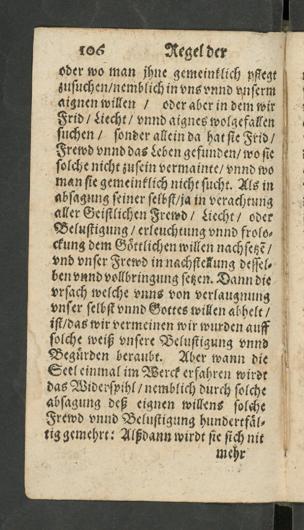 106 Regel der
oder wo man jhne gemeinklich pflegt
zusuchen/nemblich in vns vnnd vnserm
aignen willen / oder aber in dem wir
Frid / Liecht / vnnd aignes wolgefallen
suchen / sonder allein da hat sie Frid /
Frewd vnnd das Leben gefunden / wo sie
solche nicht zusein vermainte / vnnd wo
man sie gemeinklich nicht sucht. Als in
absagung seiner selbst/ja in verachtung
aller Geistlichen Frewd / Liecht / oder
Belustigung / erleuchtung vnnd frolo-
ckung dem Göttlichen willen nachsetzẽ /
vnd vnser Frewd in nachstellung dessel-
ben vnnd vollbringung setzen. Dann die
vrsach welche vnns von verlaugnung
vnser selbst vnnd Gottes willen abhelt /
ist/das wir vermeinen wir wurden auff
solche weiß vnsere Belustigung vnnd
Begürden beraubt. Aber wann die
Seel einmal im Werck erfahren wirdt
das Widerspihl / nemblich durch solche
absagung deß eignen willens solche
Frewd vnnd Belustigung hundertfäl-
tig gemehrt: Alßdann wirdt sie sich nit
mehr